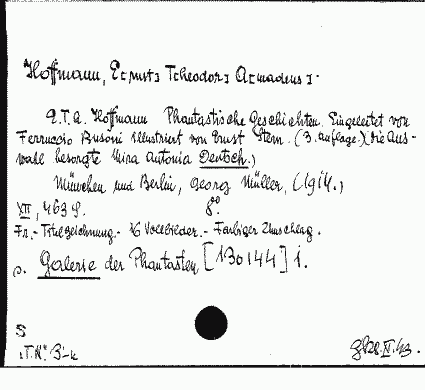 Hoffmann, E[rnst] T[heodor] A[madeus].
E. T. A. Hoffmann Phantastische Geschichten. Eingeleitet von
Ferruccio Busoni illustriert von Ernst Stern. (3. Auflage.) Die Aus-
wahl besorgte Mira Antonia Deutsch.)
München und Berlin, Georg Müller, (1914.)
XII, 463 S. 8º
Fr. - Titelzeichnung. - 16 Vollbilder. - Farbiger Umschlag.
Galerie der Phantasten [130144] 1.
S